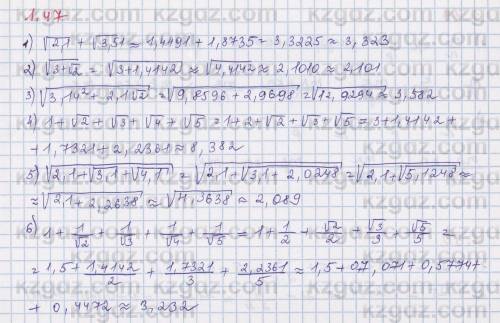 1.47
1) √2,1 + √3,51 ≈ 1,4491 + 1,8735 = 3,3225 ≈ 3,323
2) √(3+√2) = √(3+1,4142) ≈ √4,4142 ≈ 2,1010 ≈ 2,101
3) √(3,14² + 2,1√2) = √(9,8596 + 2,9698) = √12,9294 ≈ 3,582
4) 1+√2 + √3 + √4 + √5 = 1+2+√2+√3+√5 = 3+1,4142 +
+ 1,7321 + 2,2361 ≈ 8,382
5) √(2,1+√(3,1+√4,1)) = √(2,1+√(3,1+2,0248)) = √(2,1+√5,1248) ≈
≈ √(2,1+2,2638) ≈ √4,3638 ≈ 2,089
6) 1 + 1/√2 + 1/√3 + 1/√4 + 1/√5 = 1 + 1/2 + √2/2 + √3/3 + √5/5 =
= 1,5 + 1,4142/2 + 1,7321/3 + 2,2361/5 ≈ 1,5 + 07,071 + 0,5774 +
+ 0,4472 ≈ 3,232